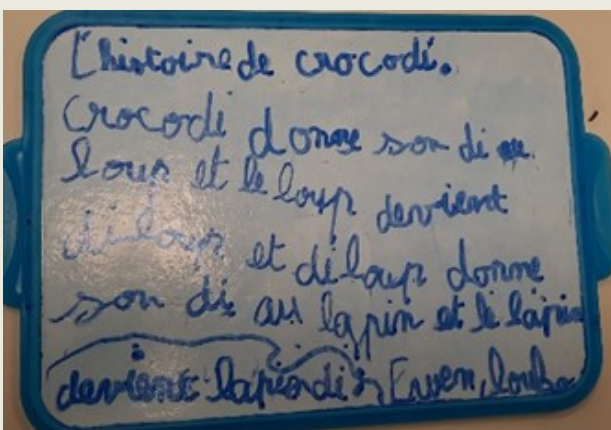 L'histoire de crocodi.
Crocodi donne son di au
loup et le loup devient
diloup et diloup donne
son di au lapin et le lapin
devient lapindi Ewen, louka